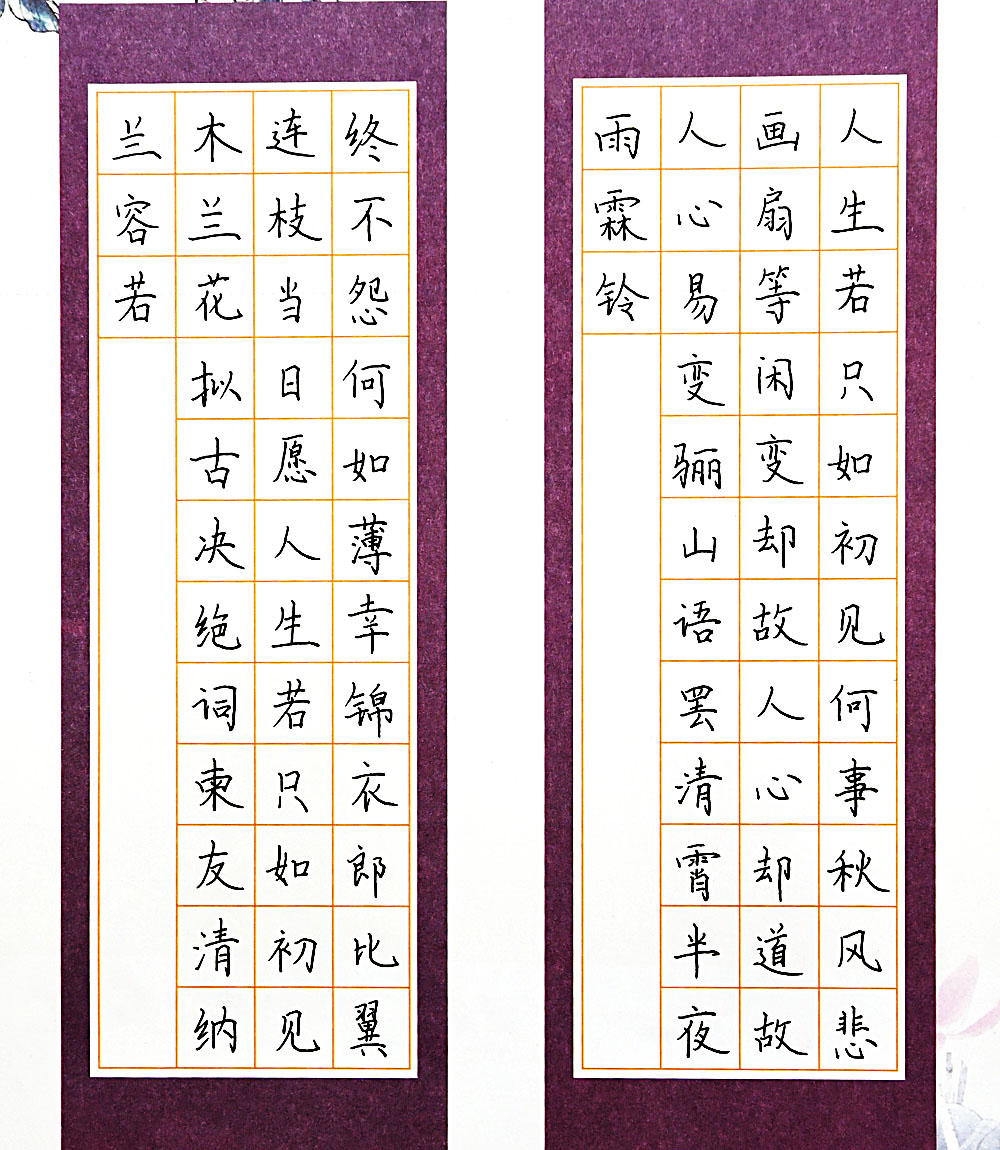 人生若只如初见何事秋风悲
画扇等闲变却故人心却道故
人心易变骊山语罢清霄半夜
雨霖铃
终不怨何如薄幸锦衣郎比翼
连枝当日愿人生若只如初见
木兰花拟古决绝词柬友清纳
兰容若